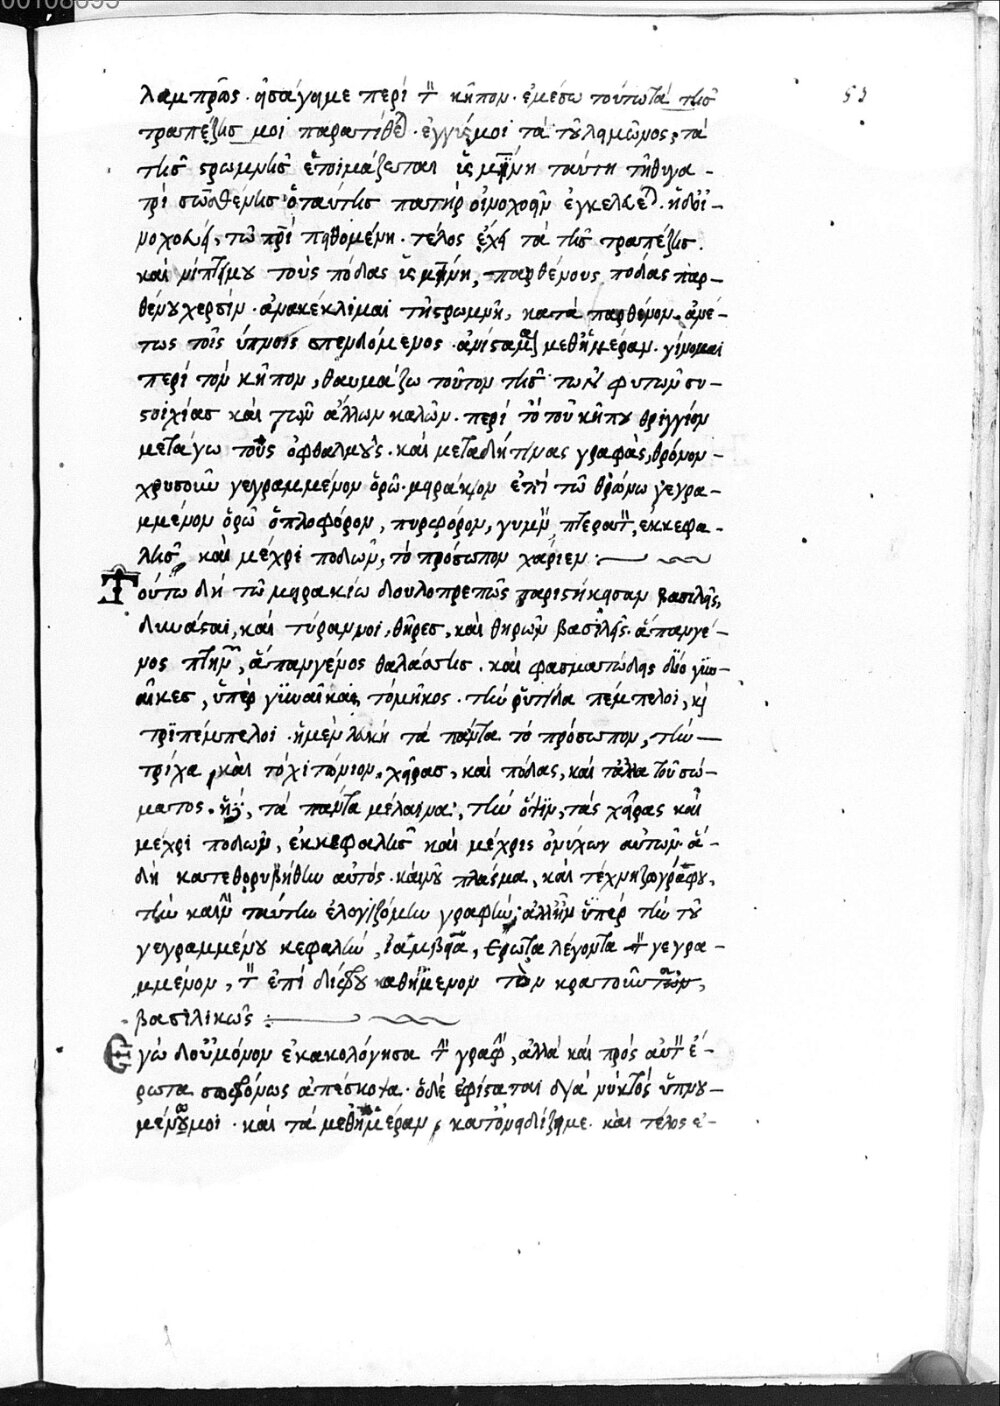 00108695
53
λαμπρῶς· εἰσάγει με περὶ τὸν κῆπον· ἐμέσω τούτω τὰ τῆς
τραπέζης μοι παρατίθεται· ἐγγύς μοι τὰ τοῦ λειμῶνος, τὰ
τῆς στρωμνῆς ἑτοιμάζεται
τρὶ σωσθένης ὁ ταύτης πατὴρ οἰνοχοεῖν ἐγκελεύεται· ἡ δ' οἰ-
νοχοεῖ, τῶ πατρὶ πειθομένη· τέλος ἔχει τὰ τῆς τραπέζης·
καὶ νίπτει μου τοὺς πόδας ὑσμίνη, παρθένους πόδας παρ-
θένου χερσίν· ἀνακέκλιμαι τῆ στρωμνῆ, κατὰ παρθένον ἀνέ-
τως τοῖς ὕπνοις σπενδόμενος· ἀνίσταμαι μεθ' ἡμέραν· γίνομαι
περὶ τὸν κῆπον, θαυμάζω τοῦτον τῆς τῶν φυτῶν συ-
στοιχίας καὶ τῶν ἄλλων καλῶν· περὶ τὸ τοῦ κήπου θριγγίον
μετάγω τοὺς ὀφθαλμούς· καὶ μετὰ δή τινας γραφὰς, θρόνον
χρυσοῦν γεγραμμένον ὁρῶ· μειράκιον ἐπὶ τῶ θρόνω γεγρα-
μμένον ὁρῶ ὁπλοφόρον, πυρφόρον, γυμνὸν, πτερωτὸν, ἐκ κεφα-
λῆς καὶ μέχρι ποδῶν, τὸ πρόσωπον χαρίεν:
Τούτω δὴ τῶ μειρακίω δουλοπρεπῶς παριστήκεισαν βασιλεῖς,
δυνάσται, καὶ τύραννοι, θῆρες, καὶ θηρῶν βασιλεῖς· ἅπαν γέ-
νος πτηνῶν, ἅπαν γένος θαλάσσης· καὶ φασματώδεις δύο γυ-
ναῖκες, ὑπὲρ γυναῖκας τὸ μῆκος· τὴν ῥυτίδα πέμπελοι, καὶ
τριπέμπελοι· ἡ μὲν λευκὴ τὰ πάντα τὸ πρόσωπον, τὴν
τρίχα, καὶ τὸ χιτώνιον, χεῖρας, καὶ πόδας, καὶ τἄλλα τοῦ σώ-
ματος· ἡ δέ, τὰ πάντα μέλαινα, τὴν ὄψιν, τὰς χεῖρας καὶ
μέχρι ποδῶν, ἐκ κεφαλῆς καὶ μέχρις ὀνύχων αὐτῶν· ἅ-
δη κατεθορυβήθην αὐτός· καινοῦ πλάσμα, καὶ τέχνη ζωγράφου,
τὴν καινὴν ταύτην ἐλογιζόμην γραφήν· ἀλλ' ἦν ὑπὲρ τὴν τοῦ
γεγραμμένου κεφαλὴν, ἰαμβεῖα, ἔρωτα λέγοντα τὸν γεγρα-
μμένον, τὸν ἐπὶ δίφρου καθήμενον τῶν κρατούντων,
βασιλικῶς:
Ἐγὼ δ' οὐ μόνον ἐκακολόγησα τὴν γραφὴν, ἀλλὰ καὶ πρὸς αὐτὸν ἔ-
ρωτα ἀπέσκοψα· ὁ δὲ ἐφίσταται διὰ νυκτὸς ὑπνου-
μένω μοι· καὶ τὰ μεθ' ἡμέραν, κατονειδίζει με· καὶ τέλος ἐ-